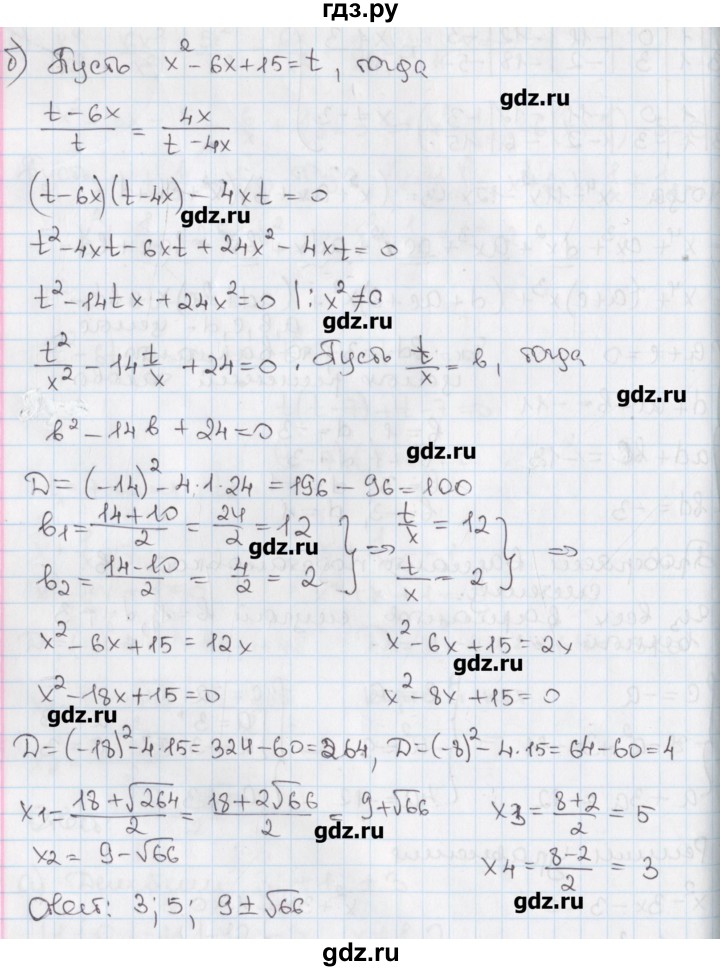 гдз.ру
б) Пусть x² - 6x + 15 = t, тогда
gdz.ru
(t - 6x)/t = 4x/(t - 4x)
gdz.ru
(t - 6x)(t - 4x) - 4xt = 0
gdz.ru
t² - 4xt - 6xt + 24x² - 4xt = 0
t² - 14tx + 24x² = 0 |: x² ≠ 0
gdz.ru
t²/x² - 14 t/x + 24 = 0. Пусть t/x = b, тогда
gdz.ru
b² - 14b + 24 = 0
gdz.ru
D = (-14)² - 4·1·24 = 196 - 96 = 100
b₁ = (14+10)/2 = 24/2 = 12 } ⇒ t/x = 12 } ⇒
gdz.ru
b₂ = (14-10)/2 = 4/2 = 2 t/x = 2
x² - 6x + 15 = 12x x² - 6x + 15 = 2x
gdz.ru
x² - 18x + 15 = 0 x² - 8x + 15 = 0
gdz.ru
D = (-18)² - 4·15 = 324 - 60 = 264, D = (-8)² - 4·15 = 64 - 60 = 4
x1 = (18 + √264)/2 = (18 + 2√66)/2 = 9 + √66 x3 = (8+2)/2 = 5
gdz.ru
x2 = 9 - √66 x4 = (8-2)/2 = 3
gdz.ru
Ответ: 3; 5; 9 ± √66
gdz.ru